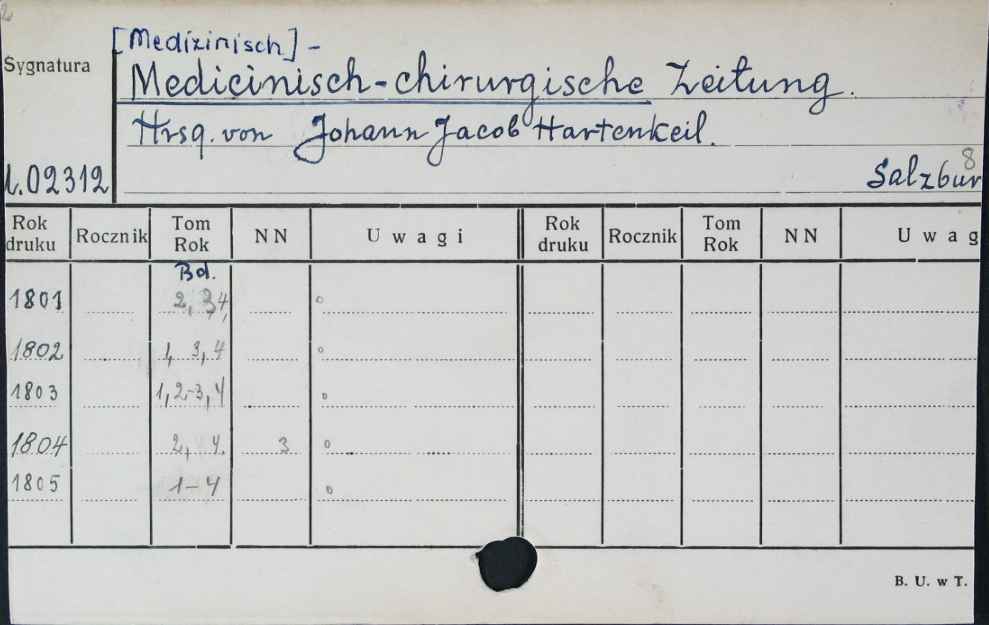 2
[Medizinisch]-
Sygnatura
Medicinisch-chirurgische Zeitung.
Hrsg. von Johann Jacob Hartenkeil.
8
02312 Salzbur
Rok druku Rocznik Tom Rok NN Uwagi Rok druku Rocznik Tom Rok NN Uwag
Bd.
1801 2, 3, 4,
1802 1, 3, 4
1803 1, 2-3, 4
1804 2, 4. 3
1805 1-4
B. U. w T.